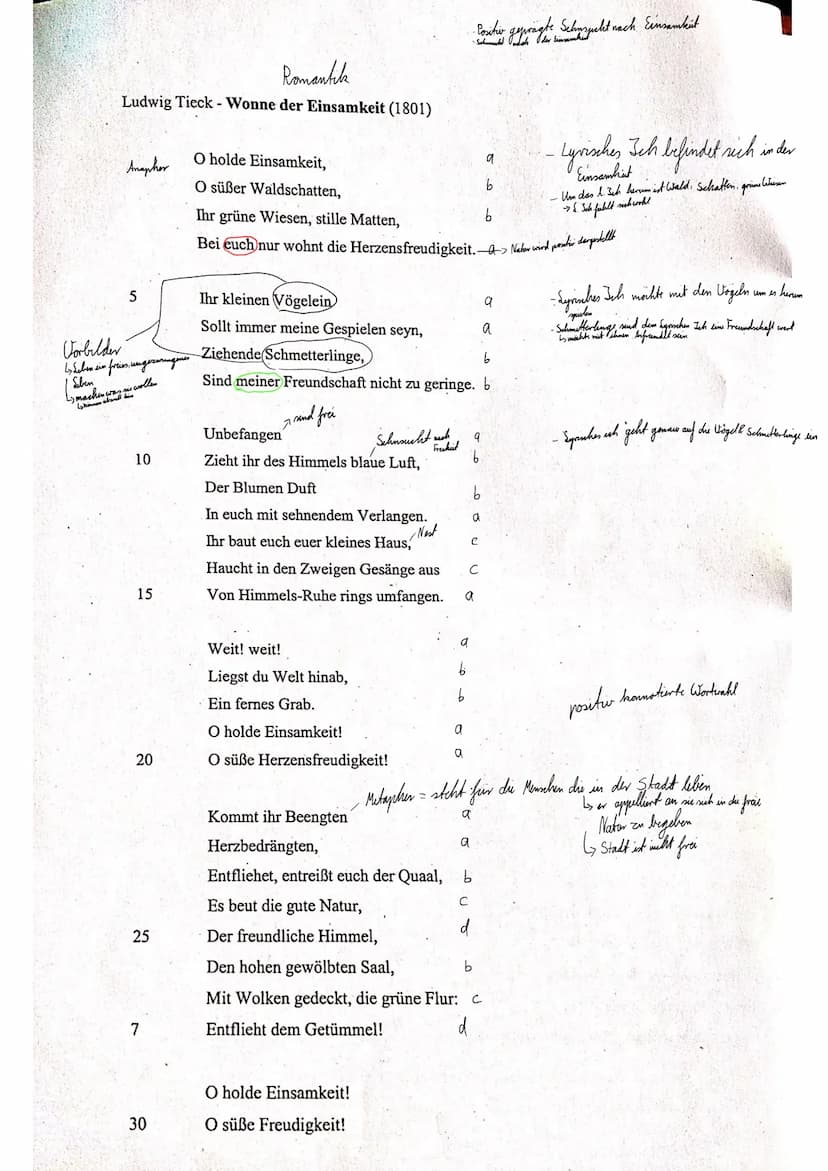 Positiv geprägte Sehnsucht nach Einsamkeit
Sehnsucht nach der Einsamkeit
Romantik
Ludwig Tieck - Wonne der Einsamkeit (1801)
Anapher O holde Einsamkeit, a
O süßer Waldschatten, b
Ihr grüne Wiesen, stille Matten, b
Bei euch nur wohnt die Herzensfreudigkeit. a -> Natur wird positiv dargestellt
- Lyrisches Ich befindet sich in der
Einsamkeit
- Um das l. Ich herum ist Wald, Schatten, grüne Wiesen
-> l. Ich fühlt sich wohl
5 Ihr kleinen Vögelein a
Sollt immer meine Gespielen seyn, a
Ziehende Schmetterlinge, b
Sind meiner Freundschaft nicht zu geringe. b
Vorbilder
↳ Leben ein freies, ungezwungenes
Leben
↳ machen was sie wollen
- Lyrisches Ich möchte mit den Vögeln um es herum
spielen
- Schmetterlinge sind dem Lyrischen Ich eine Freundschaft wert
↳ möchte mit ihnen befreundet sein
Unbefangen ↗ sind frei a
Sehnsucht nach
Freiheit
10 Zieht ihr des Himmels blaue Luft, b
Der Blumen Duft b
In euch mit sehnendem Verlangen. a
Ihr baut euch euer kleines Haus, Nest c
Haucht in den Zweigen Gesänge aus c
15 Von Himmels-Ruhe rings umfangen. a
- Lyrisches ich geht genau auf die Vögel & Schmetterlinge ein
Weit! weit! a
Liegst du Welt hinab, b
Ein fernes Grab. b
O holde Einsamkeit! a
20 O süße Herzensfreudigkeit! a
positiv konnotierte Wortwahl
Metapher = steht für die Menschen die in der Stadt leben
↳ er appelliert an sie sich in die freie
Natur zu begeben
↳ Stadt ist nicht frei
Kommt ihr Beengten a
Herzbedrängten, a
Entfliehet, entreißt euch der Quaal, b
Es beut die gute Natur, c
25 Der freundliche Himmel, d
Den hohen gewölbten Saal, b
Mit Wolken gedeckt, die grüne Flur: c
7 Entflieht dem Getümmel! d
O holde Einsamkeit!
30 O süße Freudigkeit!